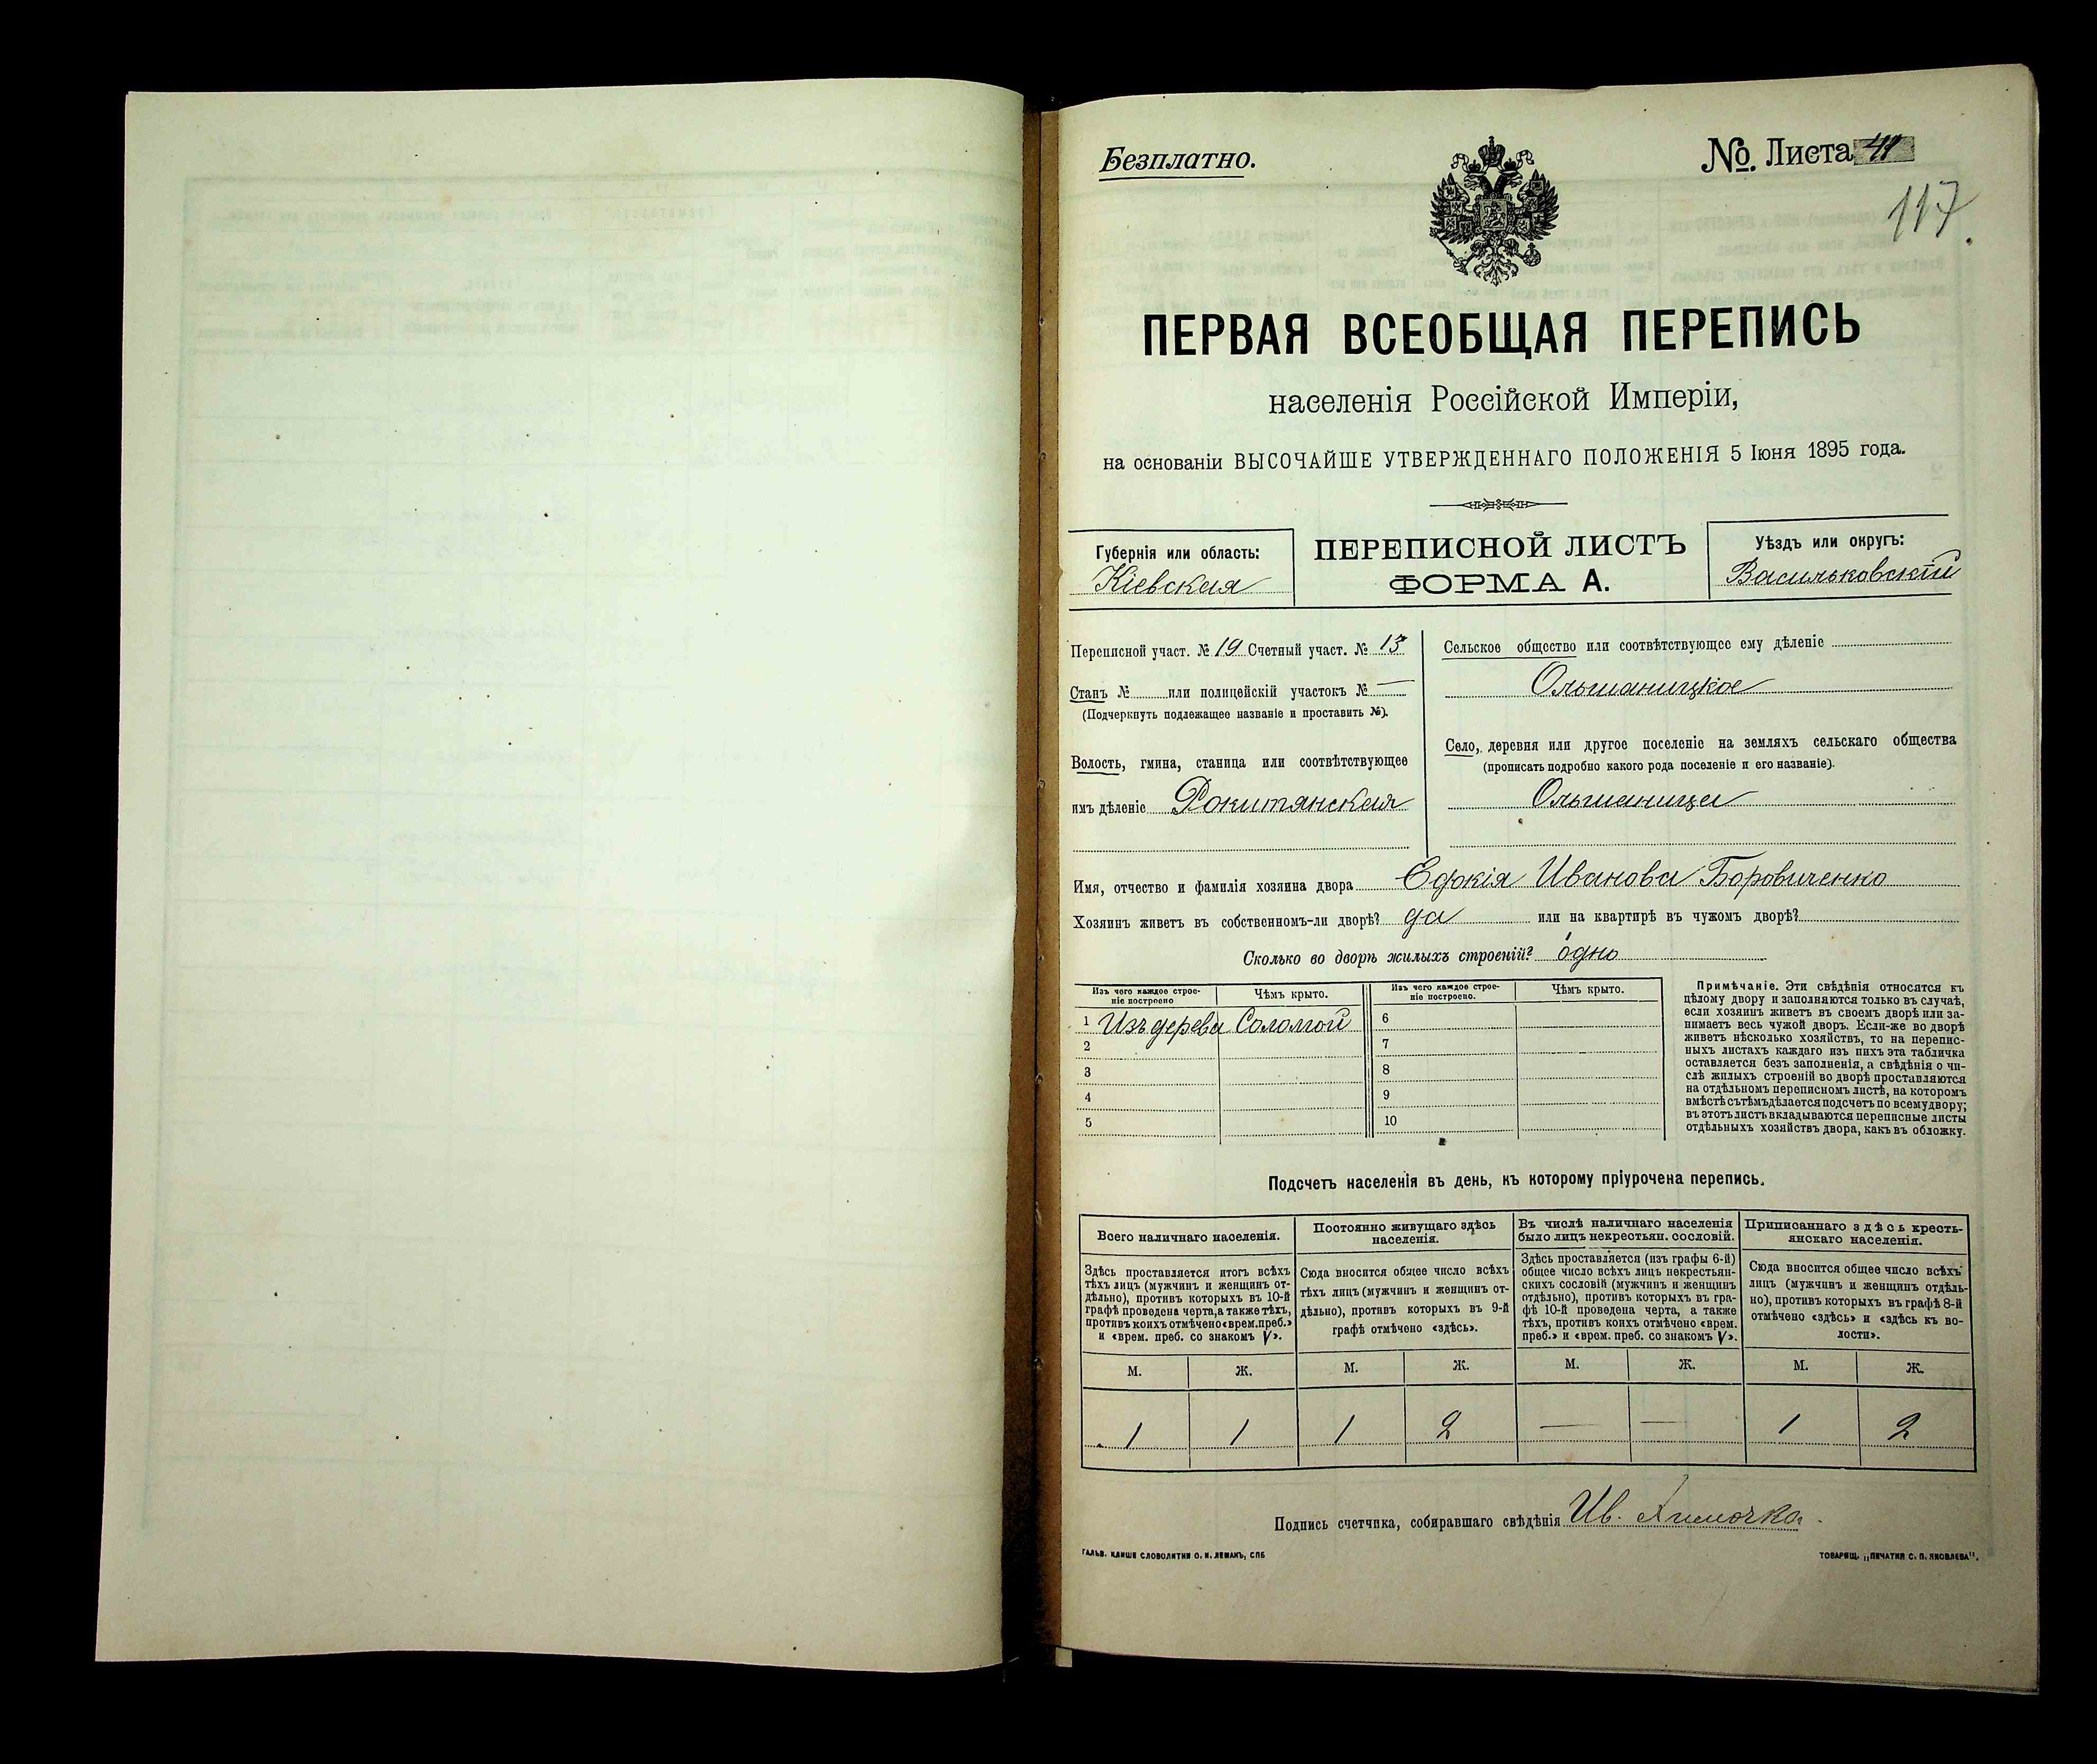 Безплатно.
№ Листа 41
117
ПЕРВАЯ ВСЕОБЩАЯ ПЕРЕПИСЬ
населенія Россійской Имперіи,
на основаніи ВЫСОЧАЙШЕ УТВЕРЖДЕННАГО ПОЛОЖЕНІЯ 5 Іюня 1895 года.
Губернія или область:
Кіевская
ПЕРЕПИСНОЙ ЛИСТЪ
ФОРМА А.
Уѣздъ или округъ:
Васильковскій
Переписной участ. № 19 Счетный участ. № 13
Станъ № или полицейскій участокъ № —
(Подчеркнуть подлежащее названіе и проставить №).
Волость, гмина, станица или соотвѣтствующее
имъ дѣленіе Рокитянская
Сельское общество или соотвѣтствующее ему дѣленіе
Ольшаницкое
Село, деревня или другое поселеніе на земляхъ сельскаго общества
(прописать подробно какого рода поселеніе и его названіе).
Ольшаница
Имя, отчество и фамилія хозяина двора Ефкія Иванова Боровиченко
Хозяинъ живетъ въ собственномъ-ли дворѣ? да или на квартирѣ въ чужомъ дворѣ?
Сколько во дворѣ жилыхъ строеній? одно
Изъ чего каждое строе-
ніе построено
Чѣмъ крыто.
Изъ чего каждое строе-
ніе построено.
Чѣмъ крыто.
1 Изъ дерева Соломой 6
2 7
3 8
4 9
5 10
Примѣчаніе. Эти свѣдѣнія относятся къ
цѣлому двору и заполняются только въ случаѣ,
если хозяинъ живетъ въ своемъ дворѣ или за-
нимаетъ весь чужой дворъ. Если-же во дворѣ
живетъ нѣсколько хозяйствъ, то на перепис-
ныхъ листахъ каждаго изъ нихъ эта табличка
оставляется безъ заполненія, а свѣдѣнія о чи-
слѣ жилыхъ строеній во дворѣ проставляются
на отдѣльномъ переписномъ листѣ, на которомъ
вмѣстѣ съ тѣмъ дѣлается подсчетъ по всему двору;
въ этотъ листъ вкладываются переписные листы
отдѣльныхъ хозяйствъ двора, какъ въ обложку.
Подсчетъ населенія въ день, къ которому пріурочена перепись.
Всего наличнаго населенія.
Здѣсь проставляется итогъ всѣхъ
тѣхъ лицъ (мужчинъ и женщинъ от-
дѣльно), противъ которыхъ въ 10-й
графѣ проведена черта, а также тѣхъ,
противъ коихъ отмѣчено «врем. преб.»
и «врем. преб. со знакомъ V».
Постоянно живущаго здѣсь
населенія.
Сюда вносится общее число всѣхъ
тѣхъ лицъ (мужчинъ и женщинъ от-
дѣльно), противъ которыхъ въ 9-й
графѣ отмѣчено «здѣсь».
Въ числѣ наличнаго населенія
было лицъ некрестьян. сословій.
Здѣсь проставляется (изъ графы 6-й)
общее число всѣхъ лицъ некрестьян-
скихъ сословій (мужчинъ и женщинъ
отдѣльно), противъ которыхъ въ гра-
фѣ 10-й проведена черта, а также
тѣхъ, противъ коихъ отмѣчено «врем.
преб.» и «врем. преб. со знакомъ V».
Приписаннаго здѣсь кресть-
янскаго населенія.
Сюда вносится общее число всѣхъ
лицъ (мужчинъ и женщинъ отдѣль-
но), противъ которыхъ въ графѣ 8-й
отмѣчено «здѣсь» и «здѣсь къ во-
лости».
М. Ж. М. Ж. М. Ж. М. Ж.
1 1 1 2 — — 1 2
Подпись счетчика, собиравшаго свѣдѣнія Ив.
ГАЛЬВ. КЛИШЕ СЛОВОЛИТНИ О. И. ЛЕМАНЪ, СПБ
ТОВАРИЩ. „ПЕЧАТНЯ С. П. ЯКОВЛЕВА".